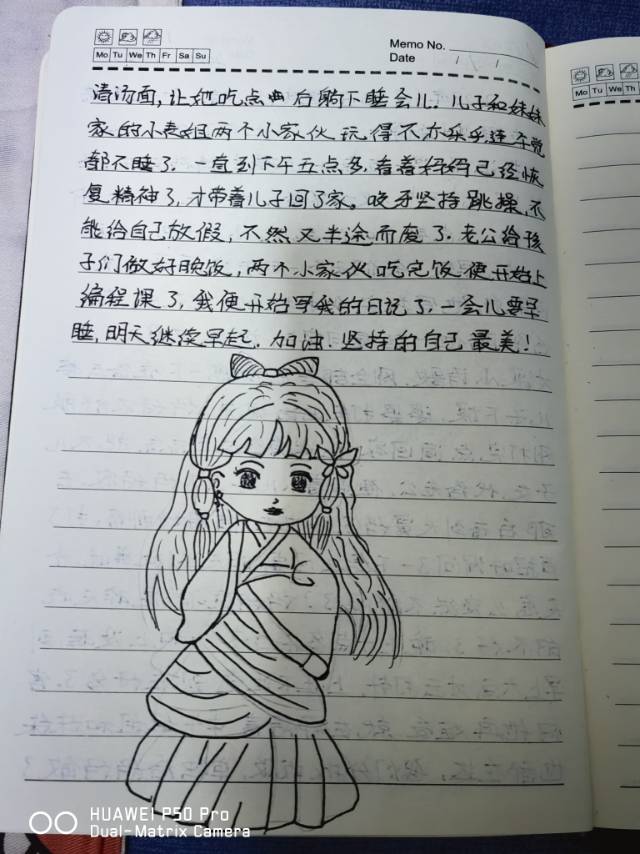 Memo No.
Date / /
Mo Tu We Th Fr Sa Su
清汤面,让她吃点再后躺下睡会儿.儿子和妹妹
家的小表姐两个小家伙玩得不亦乐乎,连午觉
都不睡了.一直到下午五点多,看着妈妈已经恢
复精神了,才带着儿子回了家。晚牙坚持跳操,不
能给自己放假,不然又半途而废了.老公给孩
子们做好晚饭,两个小家伙吃完饭便开始上
编程课了,我便开始写我的日记了.一会儿要早
睡,明天继续早起.加油.坚持的自己最美!
Mo Tu We Th
HUAWEI P50 Pro
Dual-Matrix Camera